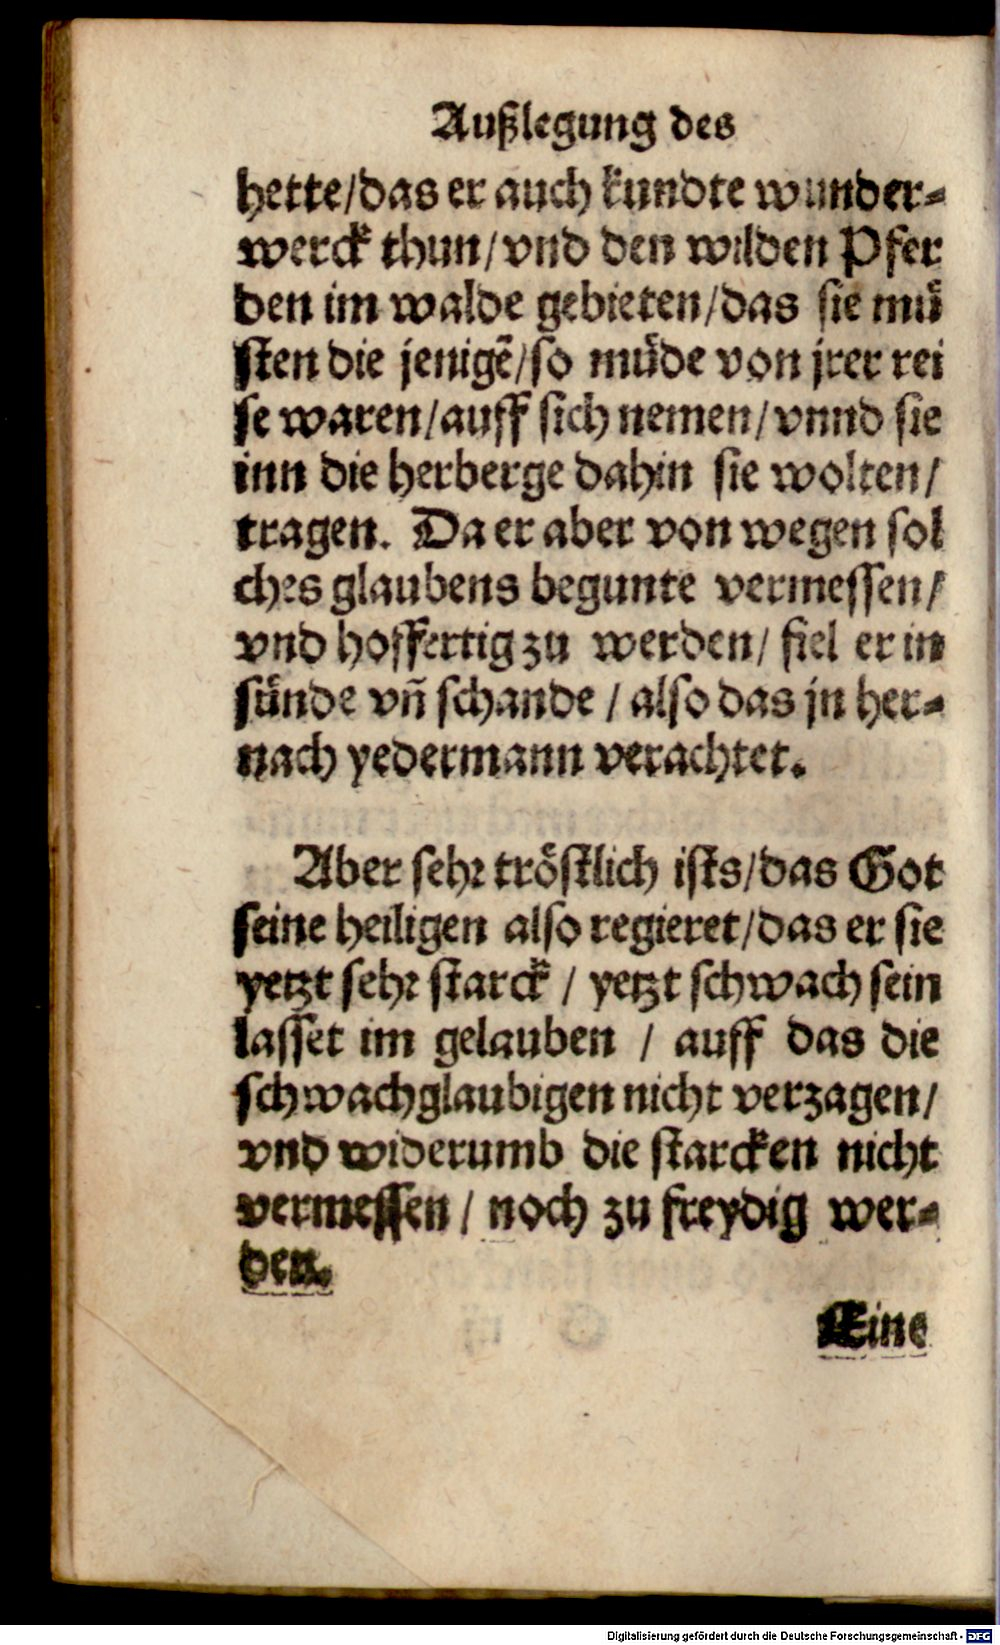 Außlegung des
hette/das er auch kundte wunder-
werck thun/vnd den wilden Pfer
den im walde gebieten/das sie mü
sten die jenigẽ/so müde von jrer rei
se waren/auff sich nemen/vnnd sie
inn die herberge dahin sie wolten/
tragen. Da er aber von wegen sol
ches glaubens begunte vermessen/
vnd hoffertig zu werden/ fiel er in
sünde vñ schande / also das jn her-
nach yedermann verachtet.
Aber sehr tröstlich ists/das Got
seine heiligen also regieret/das er sie
yetzt sehr starck / yetzt schwach sein
lasset im gelauben / auff das die
schwachglaubigen nicht verzagen/
vnd widerumb die starcken nicht
vermessen / noch zu freydig wer-
den.
Eine
Digitalisierung gefördert durch die Deutsche Forschungsgemeinschaft - DFG